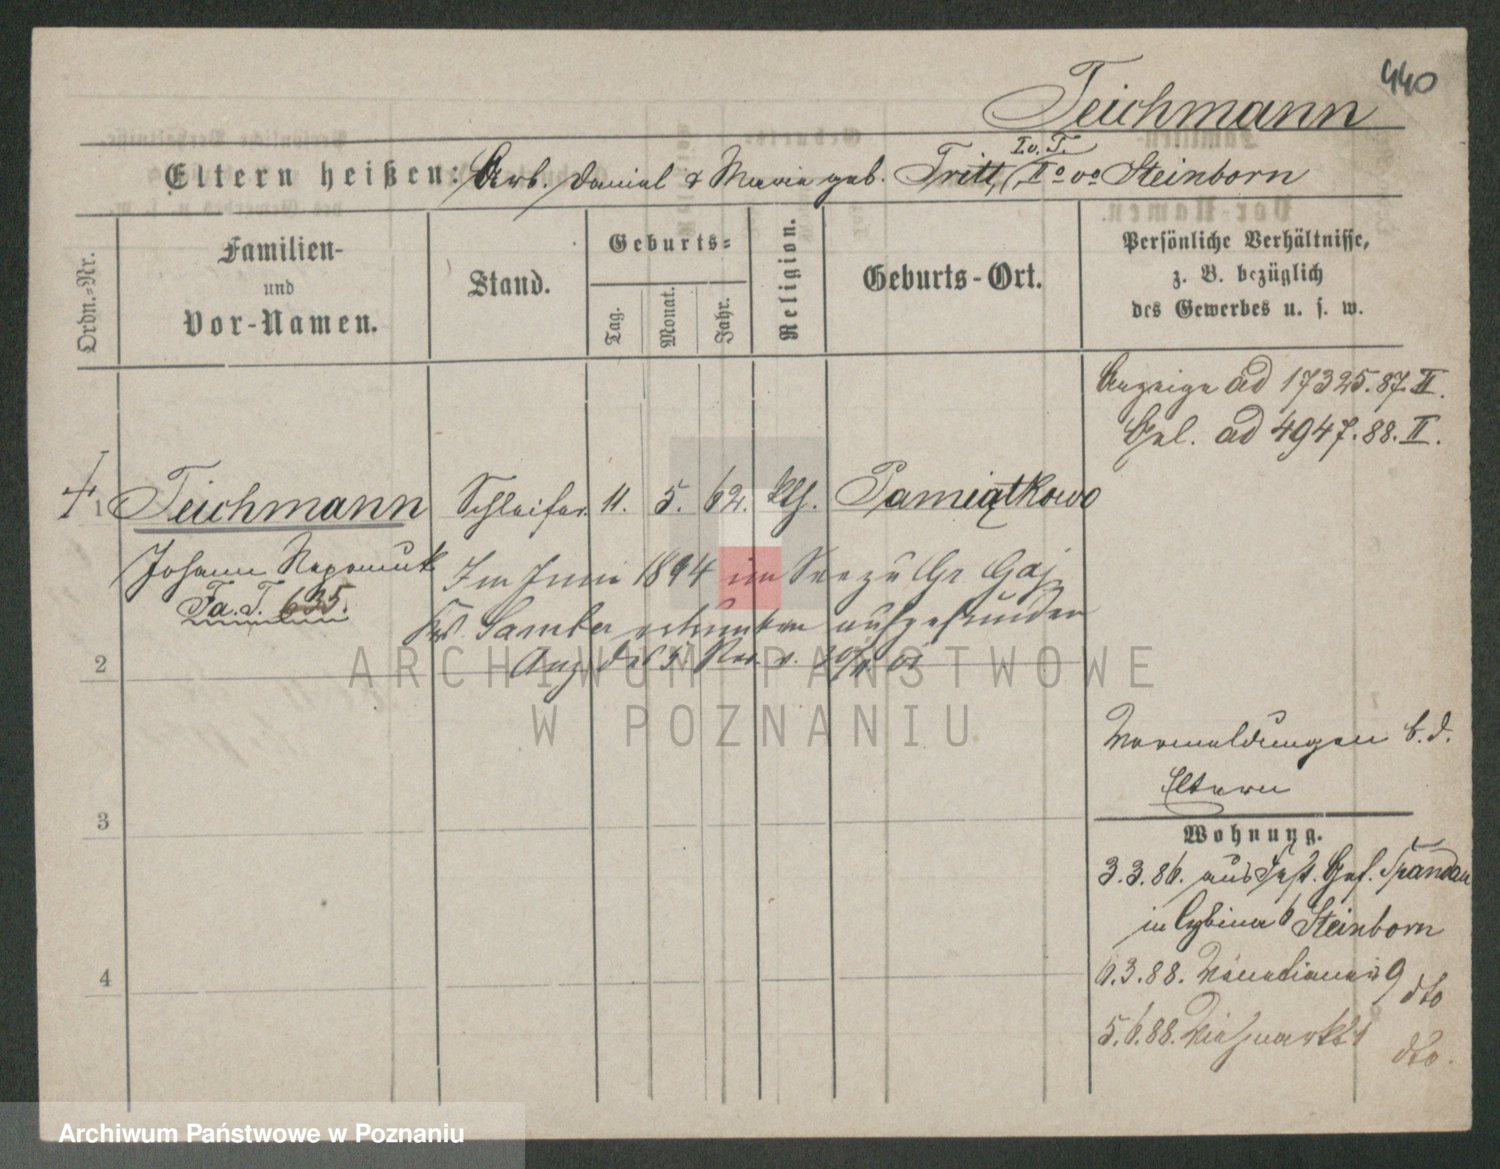 440
Teichmann
I. v. T.
Eltern heißen: Arb. Daniel & Marie geb. Tritt, II° vo Steinborn
Ordn.-Nr.
Familien- und Vor-Namen.
Stand.
Geburts-
Tag.
Monat.
Jahr.
Religion.
Geburts-Ort.
Persönliche Verhältnisse,
z. B. bezüglich
des Gewerbes u. s. w.
Anzeige ad 17325.87.II.
Gel. ad 4947.88.II.
1 Teichmann Schleifer 11. 5. 62. kth. Pamiątkowo
Johann Nepomuk
Fa. T. 635.
Im Juni 1894 im See zu Gr Gaj
Kr. Samter ertrunken aufgefunden
Anz. d. 5. Rev. v.
2
3
4
Vormeldungen b. d.
Eltern
Wohnung.
3.3.86. aus Fest. Gef. Spandau
in Cybina 6 Steinborn
6.3.88. Venetianer 9 dto
5.6.88. Viehmarkt 1 dto.
ARCHIWUM PAŃSTWOWE
W POZNANIU
Archiwum Państwowe w Poznaniu